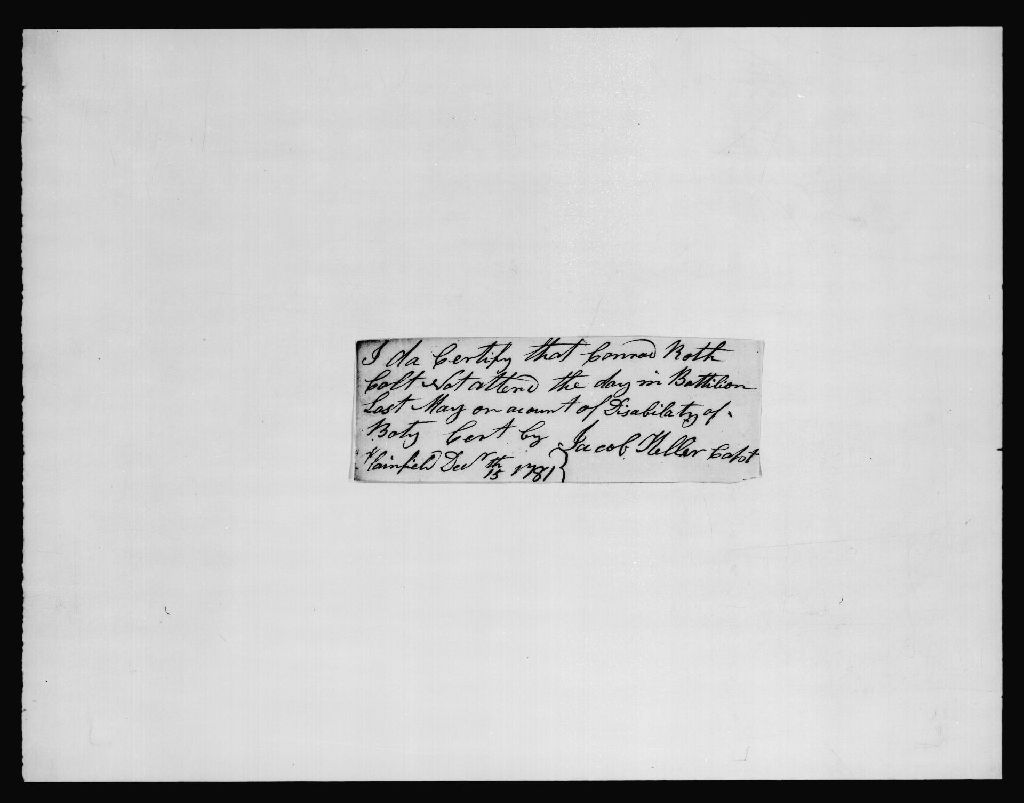 I da Certify that Conrad Roth
Colt Not attend the day in Battilion
Last May on acount of Disabilaty of
Boty Cert by Jacob Heller Capt
Plainfield Decr 15th 1781